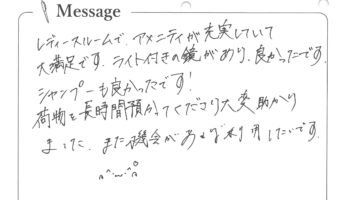 Message
レディースルームで、アメニティが充実していて
大満足です。ライト付きの鏡があり、良かったです。
シャンプーも良かったです！
荷物を長時間預かってくださり大変助かり
ました。また機会があれば利用したいです。